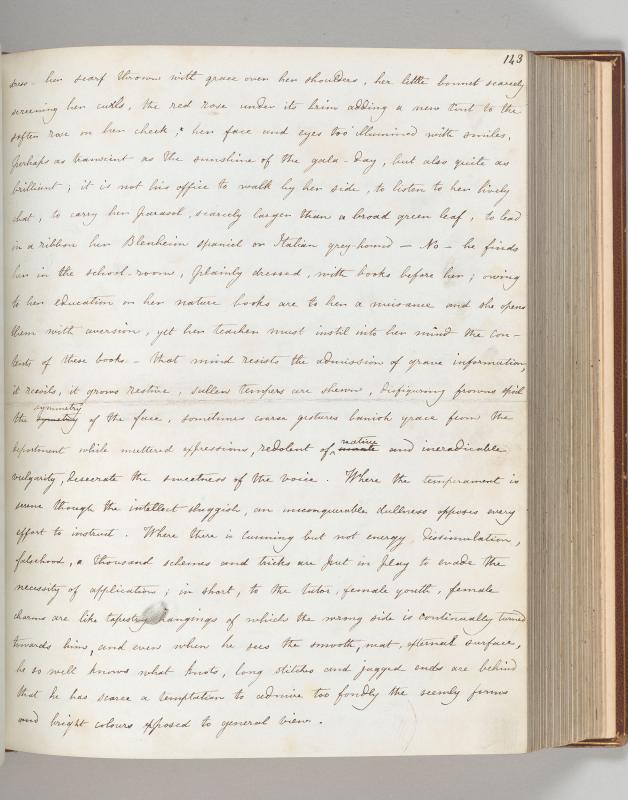 143
dress - her scarf thrown with grace over her shoulders, her little bonnet scarcely
screening her curls, the red rose under its brim adding a new tint to the
soften rose on her cheek; her face and eyes too illumined with smiles,
perhaps as transient as the sunshine of the gala-day, but also quite as
brilliant; it is not his office to walk by her side, to listen to her lively
chat, to carry her parasol, scarcely larger than a broad green leaf, to lead
in a ribbon her Blenheim spaniel or Italian grey-hound — No - he finds
her in the school-room, plainly dressed, with books before her; owing
to her education or her nature books are to her a nuisance and she opens
them with aversion, yet her teacher must instil into her mind the con-
tents of these books - that mind resists the admission of grave information,
it recoils, it grows restive, sullen tempers are shewn, disfiguring frowns spoil
symmetry
the symetry of the face, sometimes coarse gestures banish grace from the
native
deportment while muttered expressions, redolent of innate and ineradicable
vulgarity, desecrate the sweetness of the voice. Where the temperament is
serene though the intellect sluggish, an unconquerable dullness opposes every
effort to instruct. Where there is cunning but not energy, dissimulation,
falsehood, a thousand schemes and tricks are put in play to evade the
necessity of application; in short, to the tutor, female youth, female
charms are like tapestry hangings of which the wrong side is continually turned
towards him, and even when he sees the smooth, neat, external surface,
he so well knows what knots, long stitches and jagged ends are behind
that he has scarce a temptation to admire too fondly the seemly forms
and bright colours exposed to general view.